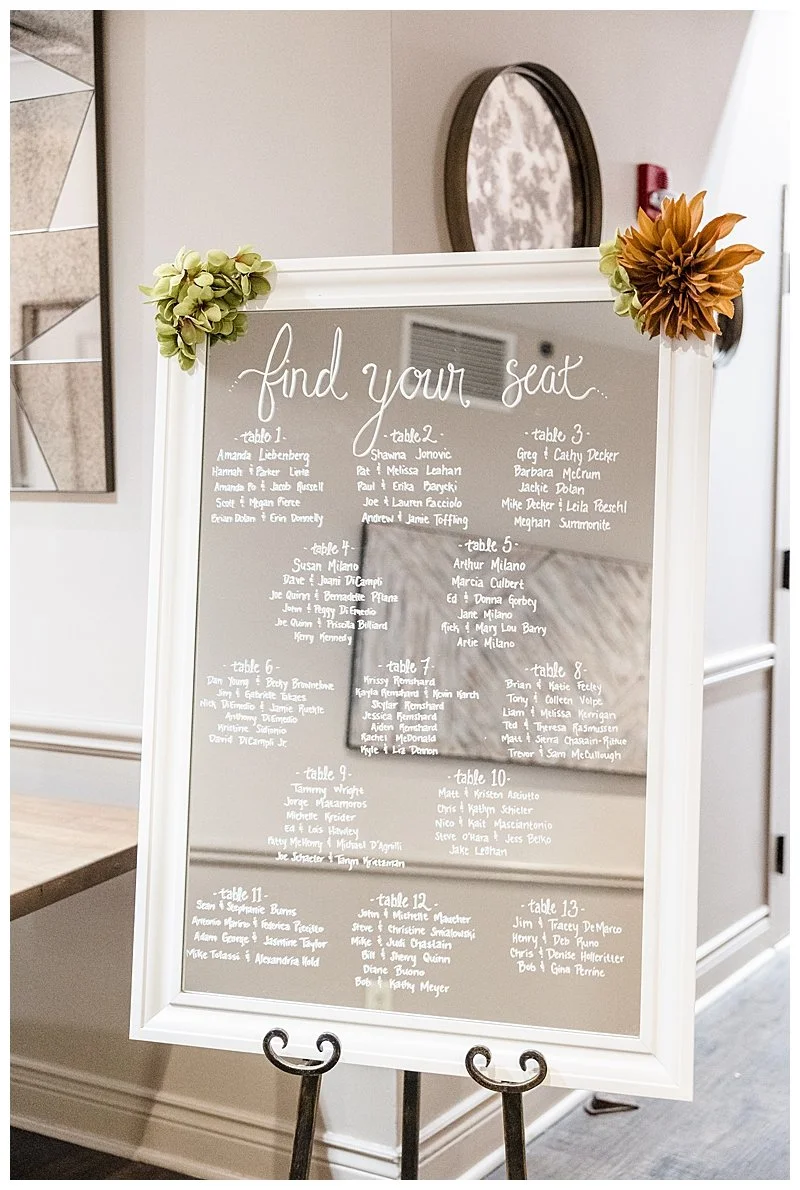 find your seat
-table 1-
Amanda Liebenberg
Hannah & Parker Lintz
Amanda Po & Jacob Russell
Scott & Megan Pierce
Brian Dolan & Erin Donnelly
-table 2-
Shawna Jonovic
Pat & Melissa Leahan
Paul & Erika Barycki
Joe & Lauren Facciolo
Andrew & Jamie Toffling
-table 3-
Greg & Cathy Decker
Barbara McCrum
Jackie Dolan
Mike Decker & Leila Poeschl
Meghan Summonite
-table 4-
Susan Milano
Dave & Joani DiCampli
Joe Quinn & Bernadette Pflanz
John & Peggy DiEmedio
Joe Quinn & Priscilla Billiard
Kerry Kennedy
-table 5-
Arthur Milano
Marcia Culbert
Ed & Donna Gorbey
Jane Milano
Rick & Mary Lou Barry
Artie Milano
-table 6-
Dan Young & Becky Brownstine
Jim & Gabrielle Takacs
Nick DiEmedio & Jamie Ruckle
Anthony DiEmedio
Kristine Sidonio
David DiCampli Jr.
-table 7-
Krissy Remshard
Kayla Remshard & Kevin Karch
Skylar Remshard
Jessica Remshard
Aiden Remshard
Rachel McDonald
Kyle & Liz Dennon
-table 8-
Brian & Katie Feeley
Tony & Colleen Volpe
Liam & Melissa Kerrigan
Ted & Theresa Rasmussen
Matt & Sierra Chastain-Rihue
Trevor & Sam McCullough
-table 9-
Tammy Wright
Jorge Matamoros
Michelle Kreider
Ed & Lois Hawley
Patty McHenry & Michael D'Agnilli
Joe Schaefer & Taryn Kritzman
-table 10-
Matt & Kristen Asciutto
Chris & Katlyn Schieler
Nico & Kait Masciantonio
Steve O'Hara & Jess Belko
Jake Leahan
-table 11-
Sean & Stephanie Burns
Antonio Marino & Federica Piccillo
Adam George & Jasmine Taylor
Mike Tolassi & Alexandria Hold
-table 12-
John & Michelle Maucher
Steve & Christine Smialowski
Mike & Judi Chastain
Bill & Sherry Quinn
Diane Buono
Bob & Kathy Meyer
-table 13-
Jim & Tracey DeMarco
Henry & Deb Runo
Chris & Denise Holleritter
Bob & Gina Perrine